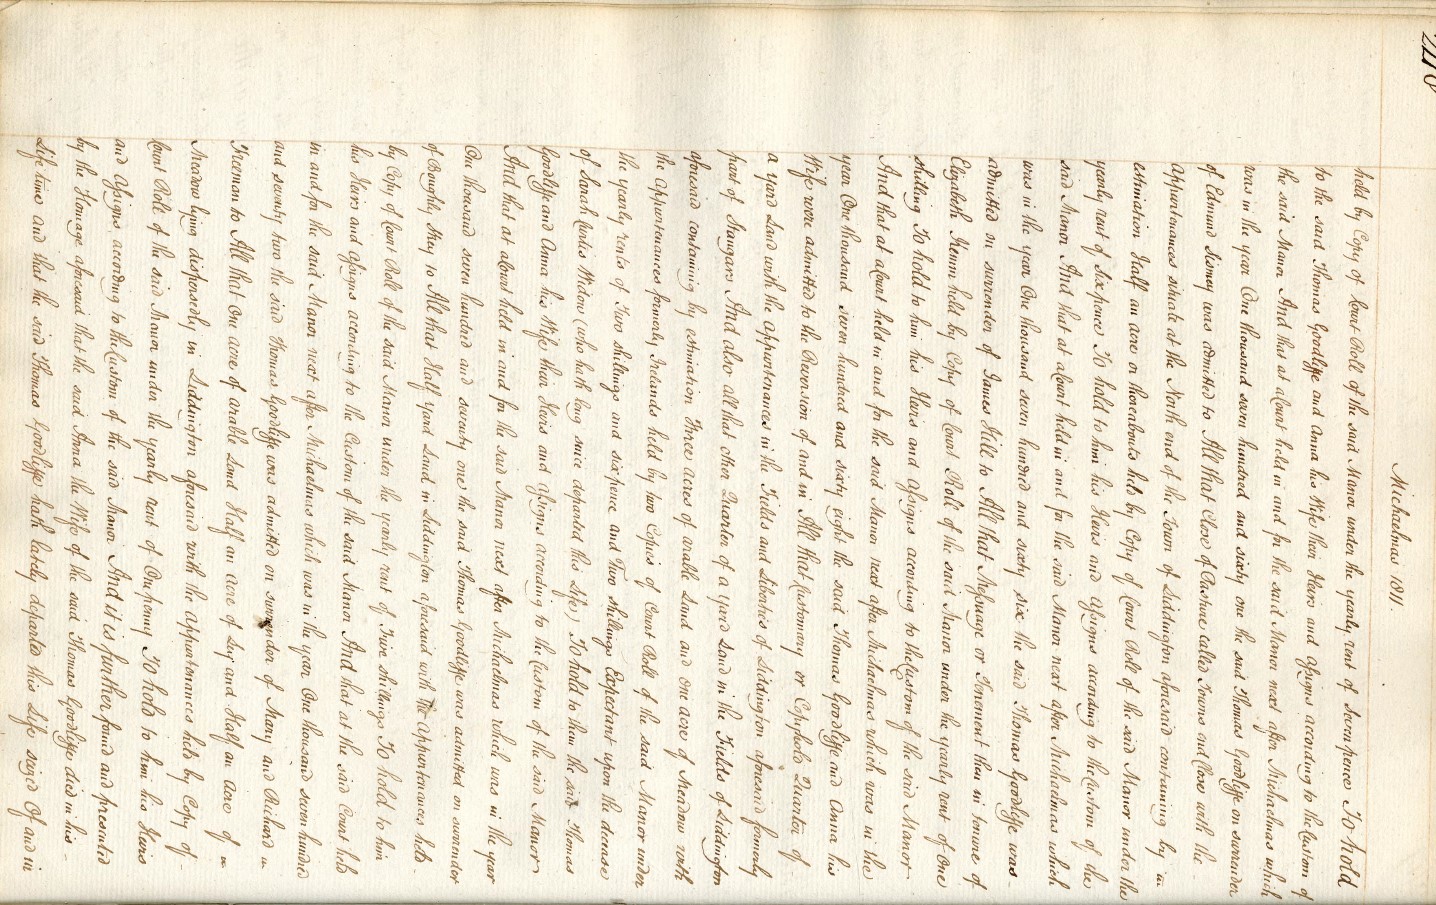 Michaelmas 1811.
held by Copy of Court Roll of the said Manor under the yearly rent of Sevenpence To hold
to the said Thomas Goodliffe and Anna his Wife their Heirs and Assigns according to the Custom of
the said Manor And that at a Court held in and for the said Manor next after Michaelmas which
was in the year One thousand seven hundred and sixty one the said Thomas Goodliffe on surrender
of Edmund Sismey was admitted to All that Close of Pasture called Towns end Close with the
Appurtenances situate at the North end of the Town of Liddington aforesaid containing by
estimation Half an acre or thereabouts held by Copy of Court Roll of the said Manor under the
yearly rent of Sixpence To hold to him his Heirs and Assigns according to the Custom of the
said Manor And that at a Court held in and for the said Manor next after Michaelmas which
was in the year One thousand seven hundred and sixty six the said Thomas Goodliffe was
admitted on surrender of James Hill to All that Messuage or Tenement then in tenure of
Elizabeth held by Copy of Court Roll of the said Manor under the yearly rent of One
shilling To hold to him his Heirs and Assigns according to the Custom of the said Manor
And that at a Court held in and for the said Manor next after Michaelmas which was in the
year One thousand seven hundred and sixty eight the said Thomas Goodliffe and Anna his
Wife were admitted to the Reversion of and in All that Customary or Copyhold Quarter of
a yard Land with the Appurtenances in the Fields and Liberties of Liddington aforesaid formerly
part of Stangars And also all that other Quarter of a yard Land in the Fields of Liddington
aforesaid containing by estimation Three acres of arable Land and one acre of Meadow with
the Appurtenances formerly Irelands held by two Copies of Court Roll of the said Manor under
the yearly rents of Two shillings and sixpence and Two shillings Expectant upon the decease
of Sarah Widow (who hath long since departed this Life) To hold to them the said Thomas
Goodliffe and Anna his Wife their Heirs and Assigns according to the Custom of the said Manor
And that at a Court held in and for the said Manor next after Michaelmas which was in the year
One thousand seven hundred and seventy one the said Thomas Goodliffe was admitted on surrender
of Boughty Shey to All that Half yard Land in Liddington aforesaid with the Appurtenances held
by Copy of Court Roll of the said Manor under the yearly rent of Five shillings To hold to him
his Heirs and Assigns according to the Custom of the said Manor And that at the said Court held
in and for the said Manor next after Michaelmas which was in the year One thousand seven hundred
and seventy two the said Thomas Goodliffe was admitted on surrender of Mary and Richard
Freeman to All that One acre of arable Land Half an acre of Ley and Half an acre of
Meadow lying dispersedly in Liddington aforesaid with the Appurtenances held by Copy of
Court Roll of the said Manor under the yearly rent of One penny To hold to him his Heirs
and Assigns according to the Custom of the said Manor And it is further found and presented
by the Homage aforesaid that the said Anna the Wife of the said Thomas Goodliffe died in his
Life time and that the said Thomas Goodliffe hath lately departed this Life seized Of and in